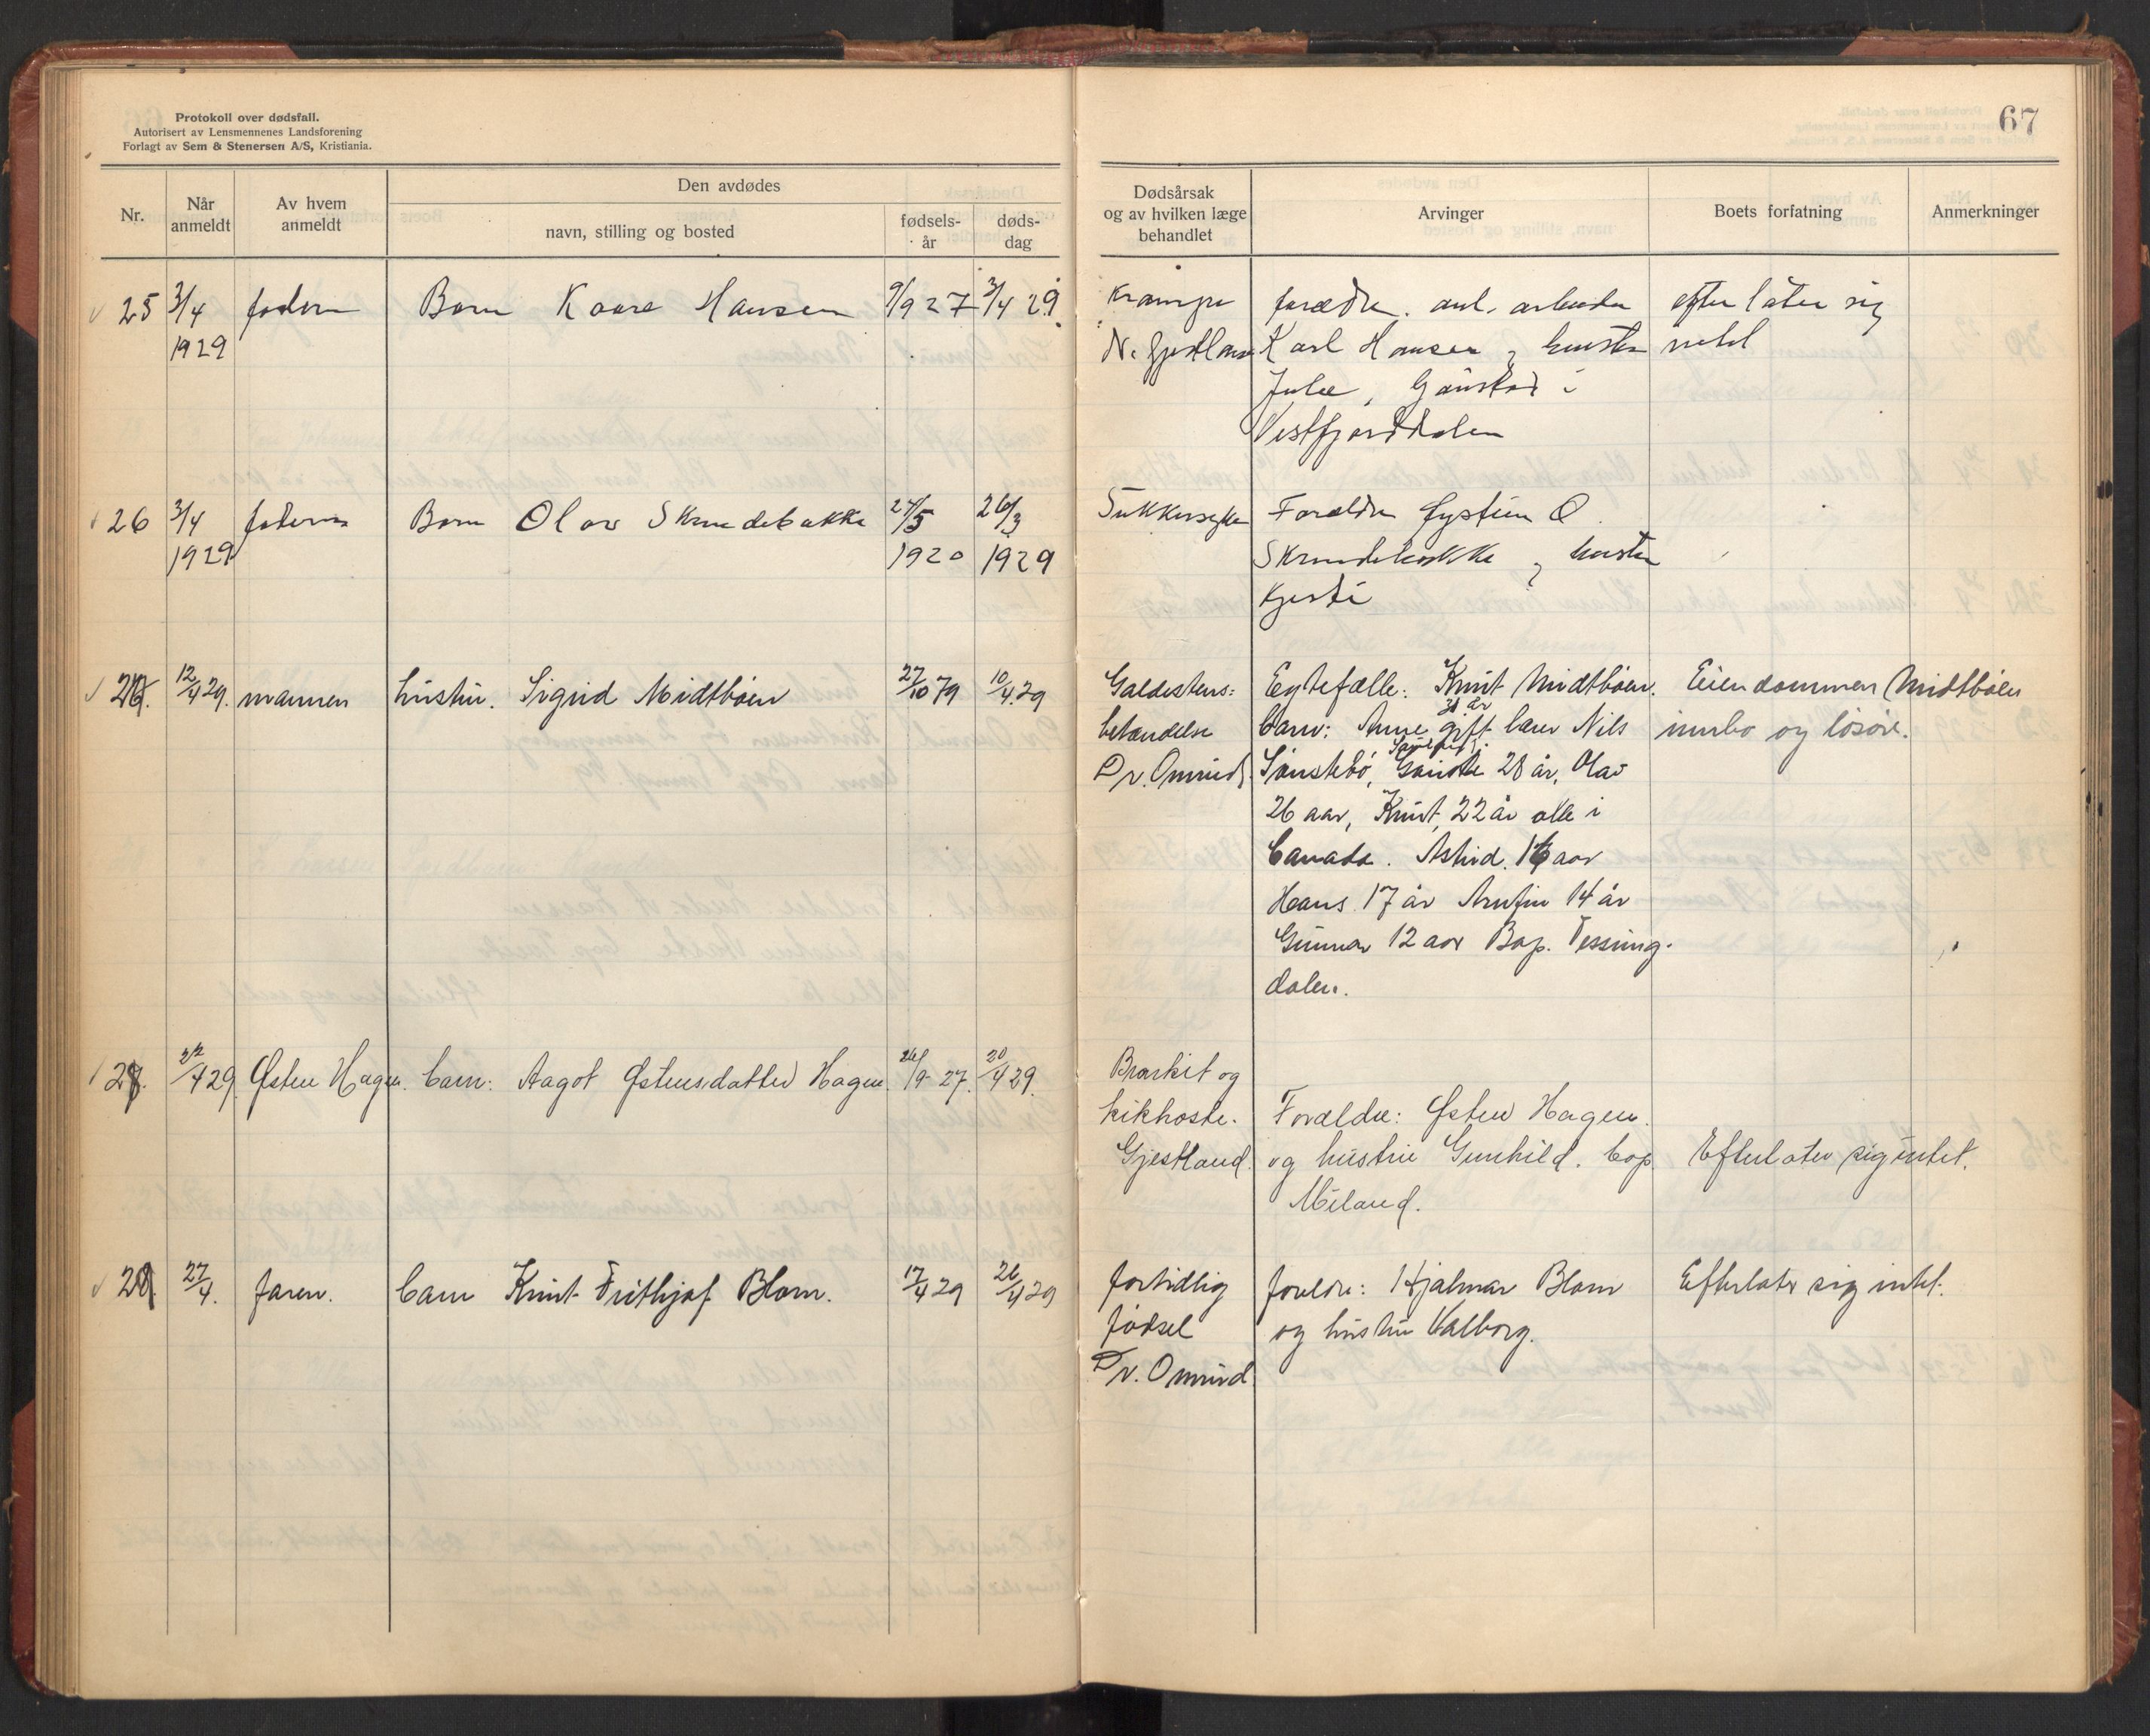 Protokoll over dødsfall.
Autorisert av Lensmennenes Landsforening
Forlagt av Sem & Stenersen A/S, Kristiania.
67
Nr.
Når anmeldt
Av hvem anmeldt
Den avdødes
navn, stilling og bosted
fødsels-
år
døds-
dag
Dødsårsak
og av hvilken læge
behandlet
Arvinger
Boets forfatning
Anmerkninger
25 3/4 1929 faderen Barn Kaare Hansen 9/9 27 3/4 29
Krampe
N. Gjestland
foreldre. anl. arbeider
Karl Hansen og hustru
Julie, Gaustad i
Vestfjorddalen
efterlåter sig
intet
26 3/4 1929 faderen Barn Olav Skrudebakke 27/5 1920 26/3 1929
Sukkersyke
Foreldre Øystein O
Skrudebakke og hustru
Kjersti
12/4 29. mannen hustru. Sigrid Midtbøen 27/10 79 10/4 29
Galdestens-
betændelse
Dr. Omsrud
Egtefælle: Knut Midtbøen.
barn: Anne 31 år gift lærer Nils
Sønstebø, 28 år, Olav
26 aar, Knut, 22 år alle i
Canada. Astrid. 16 aar
Hans 17 år Arnfin 14 år
Gunnar 12 aar Bop. Tessung-
dalen.
Eiendommen Midtbøen
innbo og løsøre.
22/4 29 Østen Hagen. barn: Aagot Østensdatter Hagen. 26/9 27. 20/4 29.
Bronkit og
kikhoste.
Gjestland.
Foreldre: Østen Hagen.
og hustru Gunhild. bop.
Miland.
Efterlater sig intet.
27/4. faren. barn Knut Frithjof Blom. 17/4 29 26/4 29
fortidlig
fødsel
Dr. Omsrud
foreldre: Hjalmar Blom
og hustru Valborg.
Efterlater sig intet.